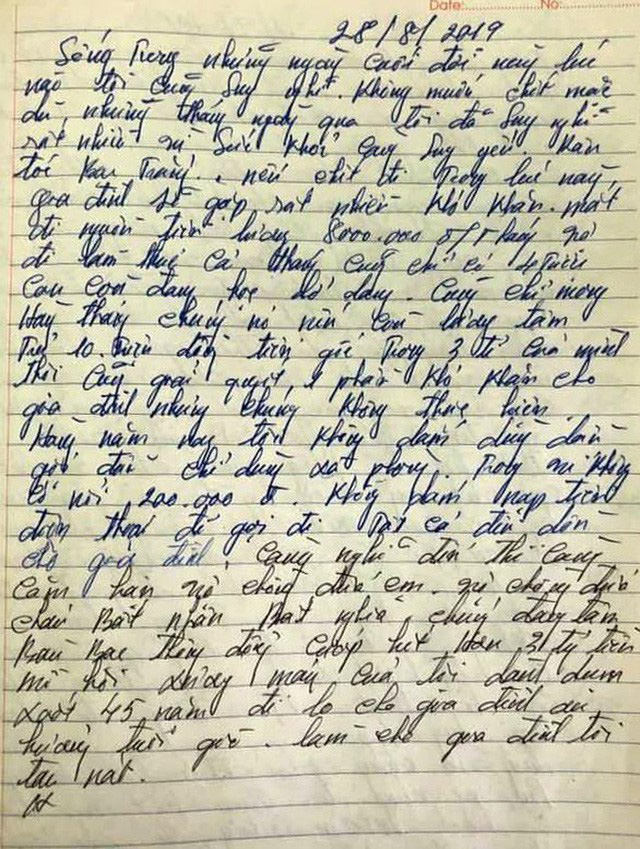 Date:.......... No:..........
28/8/2019
Sống Trong những ngày cuối đời này lúc
nào tôi cũng suy nghĩ. Không muốn chết mặc
dù, những tháng ngày qua tôi đã suy nghĩ
rất nhiều vì sức khỏe cũng suy yếu. Hơn
tôi nếu chết đi Trong lúc này,
gia đình sẽ gặp rất nhiều khó khăn. mất
đi nguồn tiền lương 8000.000 đ/tháng vợ
đi làm thuê cả tháng cũng chỉ có 4 triệu
Con còn đang học dở dang. Cũng chỉ mong
Hàng tháng chúng nó nên còn lương tâm
Trả 10. triệu đồng tiền gốc Trong 3 tỉ của mình
thôi cũng giải quyết, 1 phần khó khăn cho
gia đình nhưng chúng không thực hiện.
Hàng năm nay tôi không dám dùng dầu
gội đầu chỉ dùng xà phòng. Trong ví không
có nổi 200.000 đ. Không dám nạp tiền
điện thoại để gọi đi Tất cả để dồn
cho gia đình. Càng nghĩ đến thì càng
căm hận vợ chồng đứa em. vợ chồng đứa
cháu Bất nhân Bất nghĩa, chúng đang tâm
Bàn Bạc thông đồng cướp hết Hơn 3 tỷ tiền
mồ hôi xương máu của tôi dành dụm
suốt 45 năm để lo cho gia đình an
hưởng tuổi già. làm cho gia đình tôi
tan nát.